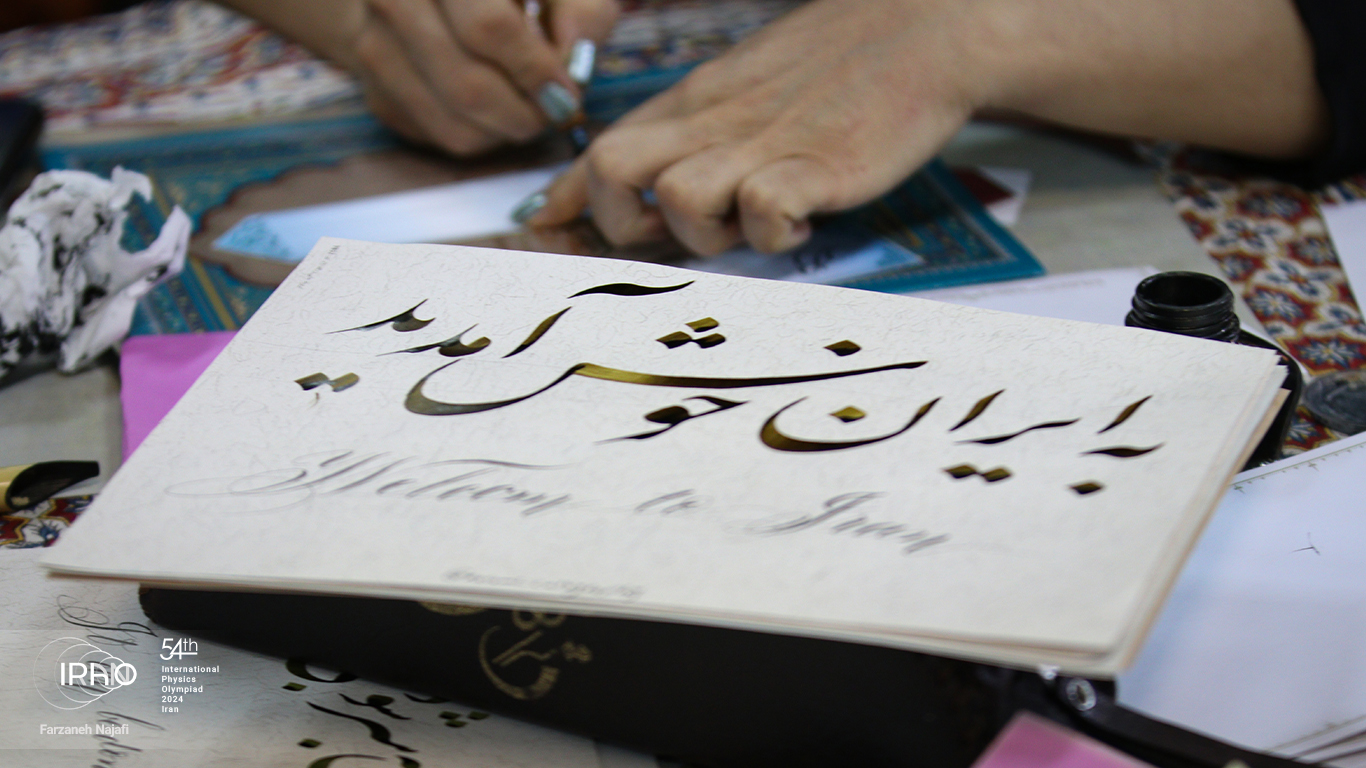 به ایران خوش آمدید
Welcom to Iran
IPHO
54th
International
Physics
Olympiad
2024
Iran
Farzaneh Najafi